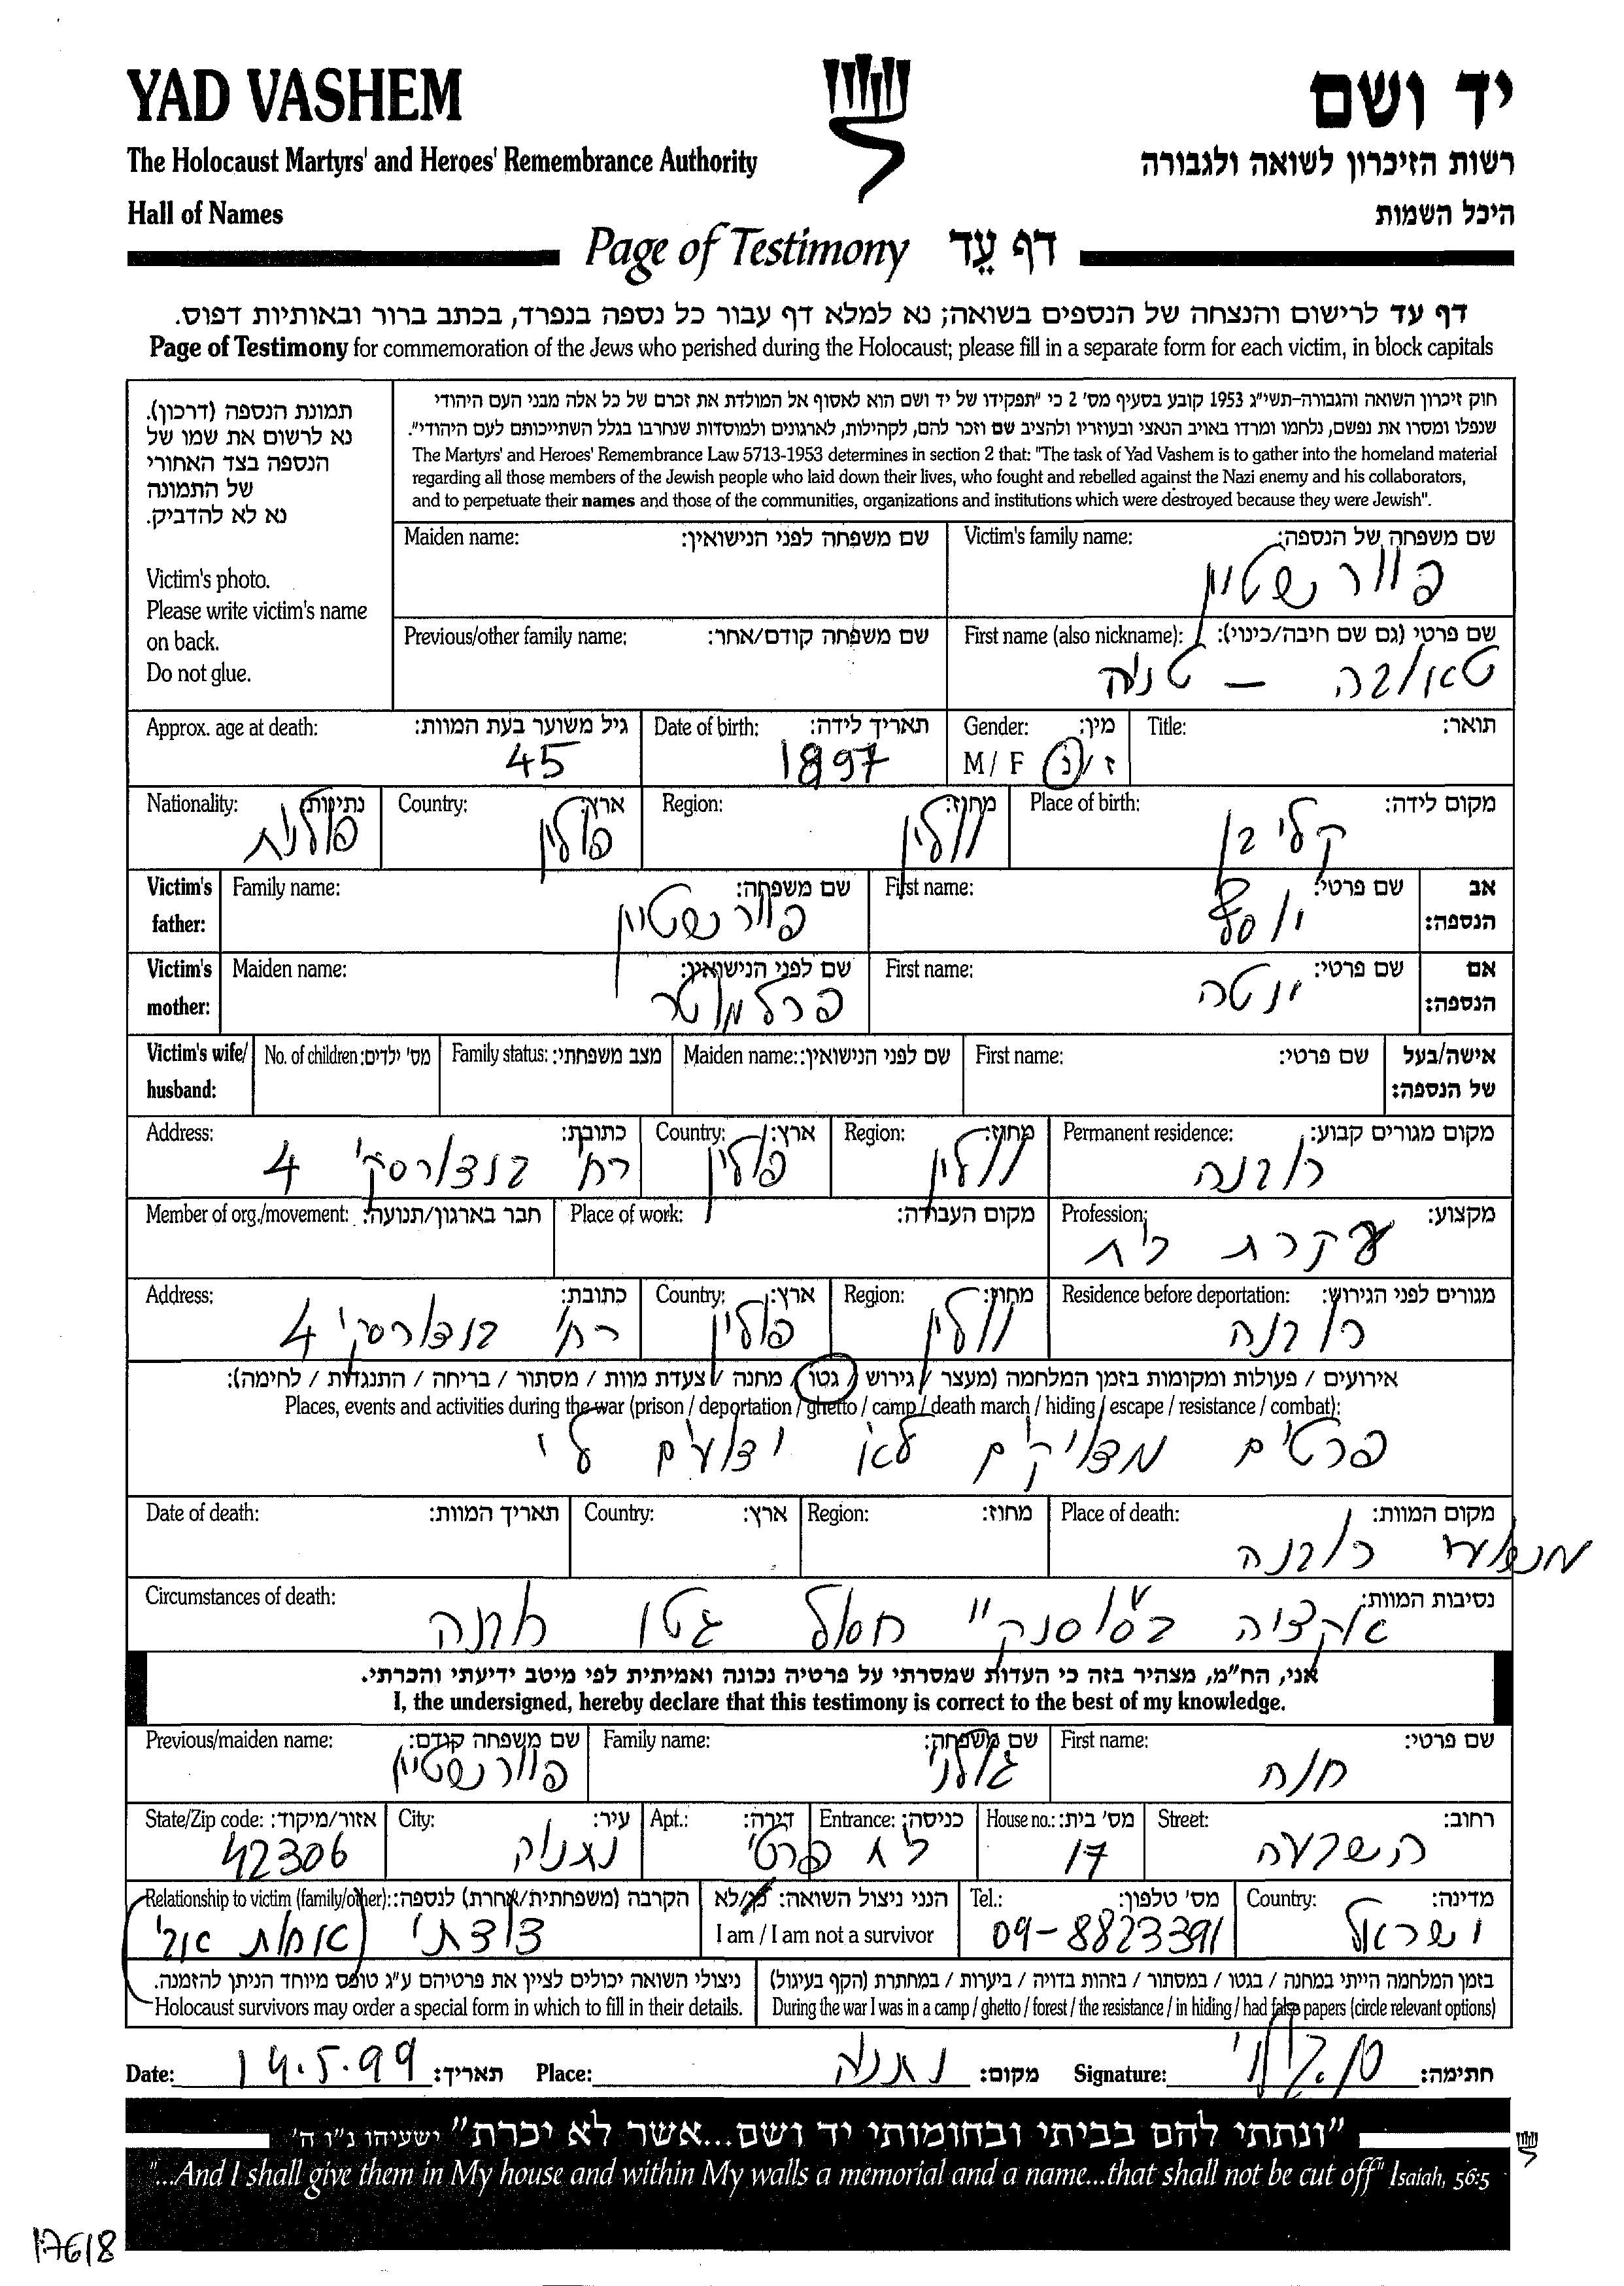 YAD VASHEM
יד ושם
The Holocaust Martyrs' and Heroes' Remembrance Authority
רשות הזיכרון לשואה ולגבורה
Hall of Names
היכל השמות
Page of Testimony דף עֵד
דף עד לרישום והנצחה של הנספים בשואה; נא למלא דף עבור כל נספה בנפרד, בכתב ברור ובאותיות דפוס.
Page of Testimony for commemoration of the Jews who perished during the Holocaust; please fill in a separate form for each victim, in block capitals
תמונת הנספה (דרכון).
נא לרשום את שמו של
הנספה בצד האחורי
של התמונה
נא לא להדביק.
Victim's photo.
Please write victim's name
on back.
Do not glue.
חוק זיכרון השואה והגבורה-תשי"ג 1953 קובע בסעיף מס' 2 כי "תפקידו של יד ושם הוא לאסוף אל המולדת את זכרם של כל אלה מבני העם היהודי
שנפלו ומסרו את נפשם, נלחמו ומרדו באויב הנאצי ובעוזריו ולהציב שם וזכר להם, לקהילות, לארגונים ולמוסדות שנחרבו בגלל השתייכותם לעם היהודי".
The Martyrs' and Heroes' Remembrance Law 5713-1953 determines in section 2 that: "The task of Yad Vashem is to gather into the homeland material
regarding all those members of the Jewish people who laid down their lives, who fought and rebelled against the Nazi enemy and his collaborators,
and to perpetuate their names and those of the communities, organizations and institutions which were destroyed because they were Jewish".
Victim's family name: שם משפחה של הנספה:
פוורשטיין
Maiden name: שם משפחה לפני הנישואין:
First name (also nickname): שם פרטי (גם שם חיבה/כינוי):
טאובה – טניה
Previous/other family name: שם משפחה קודם/אחר:
Title: תואר:
Gender: מין:
M / F ז / נ
Date of birth: תאריך לידה:
1897
Approx. age at death: גיל משוער בעת המוות:
45
Place of birth: מקום לידה:
קליבן
Region: מחוז:
וולין
Country: ארץ:
פולין
Nationality: נתינות:
פולנית
Victim's father: אב הנספה:
First name: שם פרטי:
יוסף
Family name: שם משפחה:
פוורשטיין
Victim's mother: אם הנספה:
First name: שם פרטי:
ינטה
Maiden name: שם לפני הנישואין:
פרלמוטר
Victim's wife/ husband: אישה/בעל של הנספה:
First name: שם פרטי:
Maiden name: שם לפני הנישואין:
Family status: מצב משפחתי:
No. of children: מס' ילדים:
Permanent residence: מקום מגורים קבוע:
רובנה
Region: מחוז:
וולין
Country: ארץ:
פולין
Address: כתובת:
רח' 4
Profession: מקצוע:
עקרת בית
Place of work: מקום העבודה:
Member of org./movement: חבר בארגון/תנועה:
Residence before deportation: מגורים לפני הגירוש:
רובנה
Region: מחוז:
וולין
Country: ארץ:
פולין
Address: כתובת:
רח' 4
אירועים / פעולות ומקומות בזמן המלחמה (מעצר / גירוש / גטו / מחנה / צעדת מוות / מסתור / בריחה / התנגדות / לחימה):
Places, events and activities during the war (prison / deportation / ghetto / camp / death march / hiding / escape / resistance / combat):
פרטים מדויקים לא ידועים לי
Place of death: מקום המוות:
רובנה
Region: מחוז:
Country: ארץ:
Date of death: תאריך המוות:
Circumstances of death: נסיבות המוות:
אקציה ב"סוסנקי" חיסול גטו רובנה
אני, הח"מ, מצהיר בזה כי העדות שמסרתי על פרטיה נכונה ואמיתית לפי מיטב ידיעתי והכרתי.
I, the undersigned, hereby declare that this testimony is correct to the best of my knowledge.
First name: שם פרטי:
חנה
Family name: שם משפחה:
גולני
Previous/maiden name: שם משפחה קודם:
פוורשטיין
Street: רחוב:
House no.: מס' בית:
17
Entrance: כניסה:
Apt.: דירה:
בית פרטי
City: עיר:
נתניה
State/Zip code: אזור/מיקוד:
42306
Country: מדינה:
ישראל
Tel.: מס' טלפון:
09-8823391
הנני ניצול השואה: כן/לא
I am / I am not a survivor
Relationship to victim (family/other): הקרבה (משפחתית/אחרת) לנספה:
דודתי (אחות אבי)
בזמן המלחמה הייתי במחנה / בגטו / במסתור / בזהות בדויה / ביערות / במחתרת (הקף בעיגול)
During the war I was in a camp / ghetto / forest / the resistance / in hiding / had false papers (circle relevant options)
ניצולי השואה יכולים לציין את פרטיהם ע"ג טופס מיוחד הניתן להזמנה.
Holocaust survivors may order a special form in which to fill in their details.
Date: 14.5.99 תאריך: Place: נתניה מקום: Signature: ח. גולני חתימה:
"ונתתי להם בביתי ובחומותי יד ושם...אשר לא יכרת" ישעיהו נ"ו ה'
"...And I shall give them in My house and within My walls a memorial and a name...that shall not be cut off" Isaiah, 56:5
17618